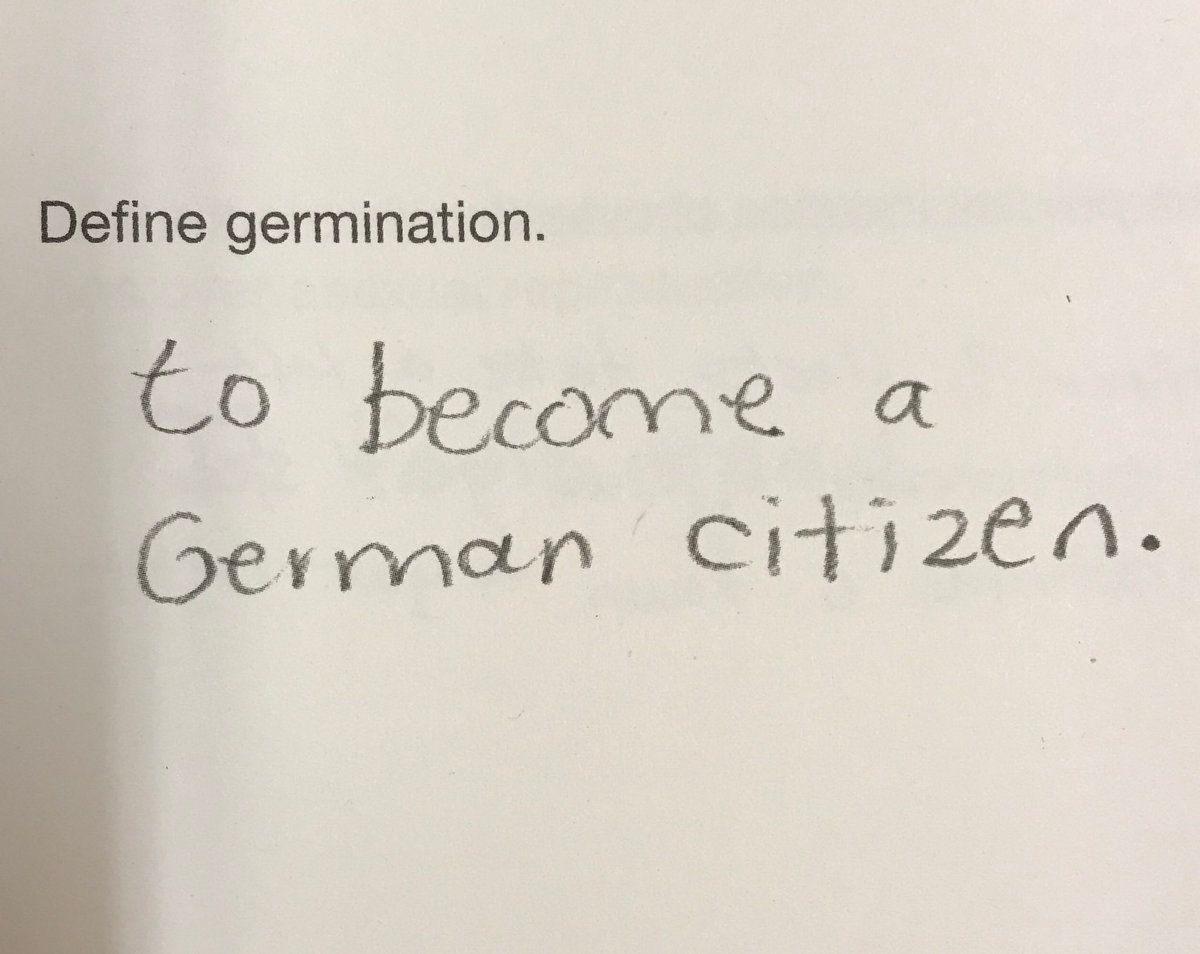 Define germination.
to become a
German citizen.